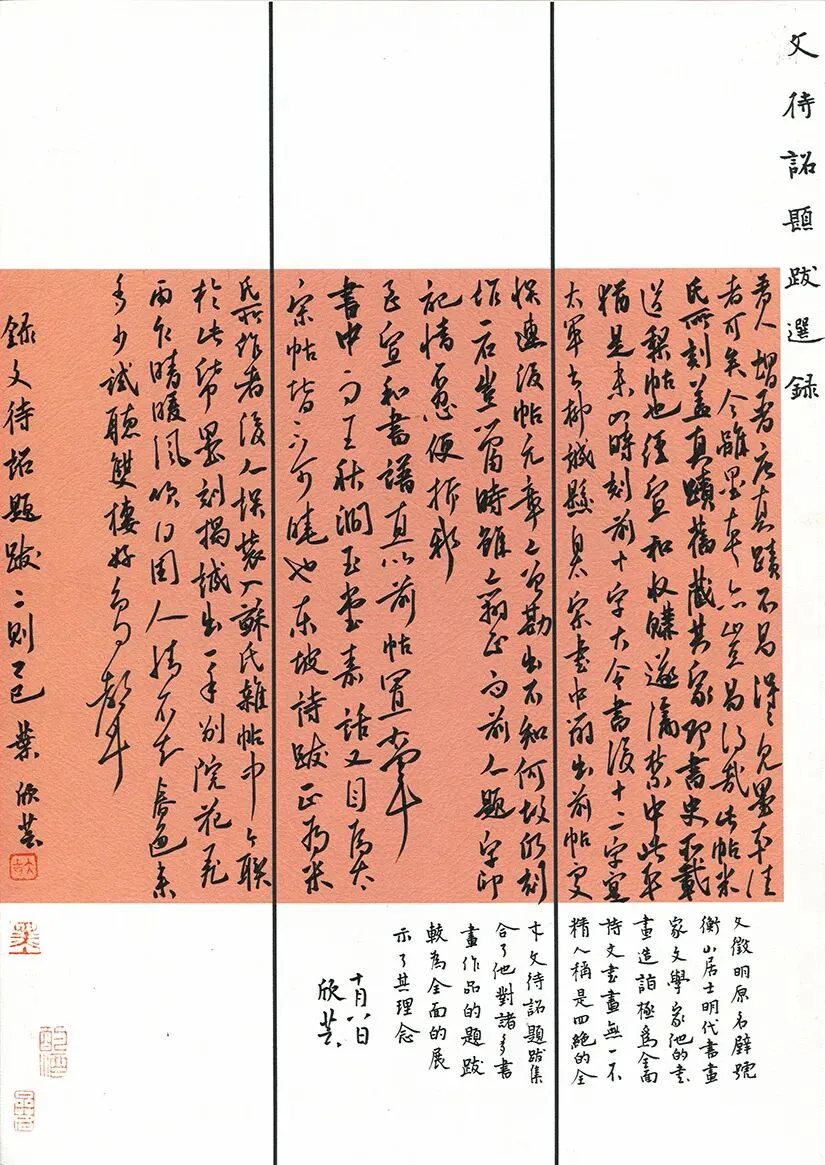 文待詔題跋選錄
晋唐真蹟不易得見墨本佳
者可矣今雖墨本亦豈易得哉此帖米
氏所刻蓋真蹟舊藏其家即書史所載
送梨帖也經宣和收購遂滿禁中此本
猶是未入時刻前十字大令書後十二字寔
大軍書柳誠懸書中前帖更
悞連後帖元章已勘出不知何故所刻
作一石豈當時雖前人題字印
記惜不忍便拆邪
至宣和書譜直以前帖置
書中而王秋澗玉堂嘉話又目為太
宗帖皆不可曉也東坡詩跋正為米
氏所作者後人誤裝入蘇氏雜帖中今聯
於此紙墨刻搨誠出一手別院花飛
雨乍晴暖風吹日困人情不知春色來
多少試聽雙棲好鳥聲
錄文待詔題跋二則乙巳葉欣芸
文徵明原名壁號
衡山居士明代書畫
家文學家他的書
畫造詣極為全面
詩文書畫無一不
精人稱是四絕的全
本文待詔題跋集
合了他對諸多書
畫作品的題跋
較為全面的展
示了其理念
十月八日
欣芸